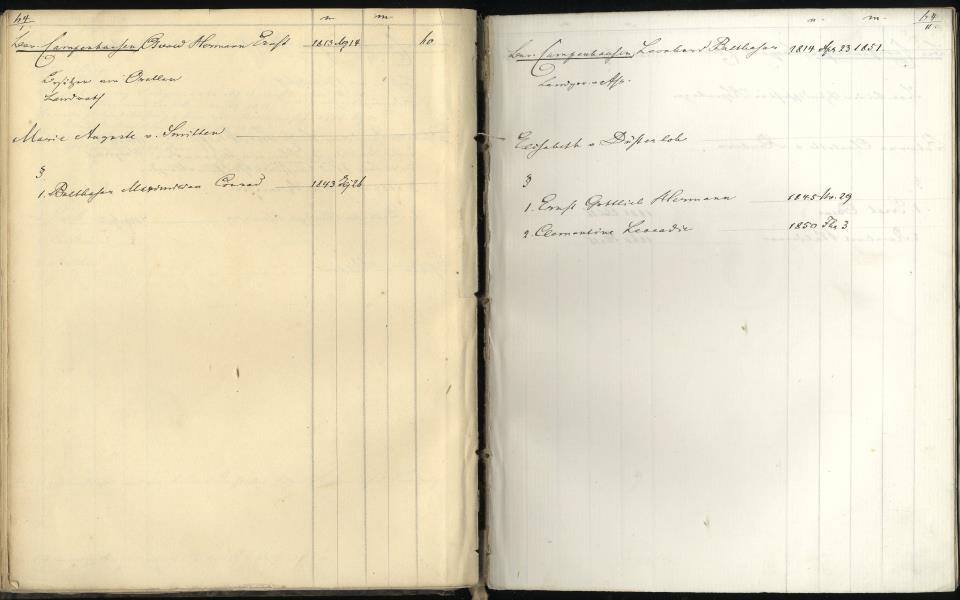 64
I
n. m.
Bar. Campenhausen, Arwid Hermann Ernst 1813 Ag 14 60
Besitzer von Orellen
Landrath
Marie Auguste v. Smitten
3
1. Balthasar Maximilian Conrad 1843 26
64
II
n. m.
Bar. Campenhausen, Leonhard Balthasar 1814 Apr 23 1851.
Landger. Ass.
Elisabeth v Düsterloh
3
1. Ernst Gottlieb Hermann 1845 Nv. 29
2. Clementine Leocadie 1850 3